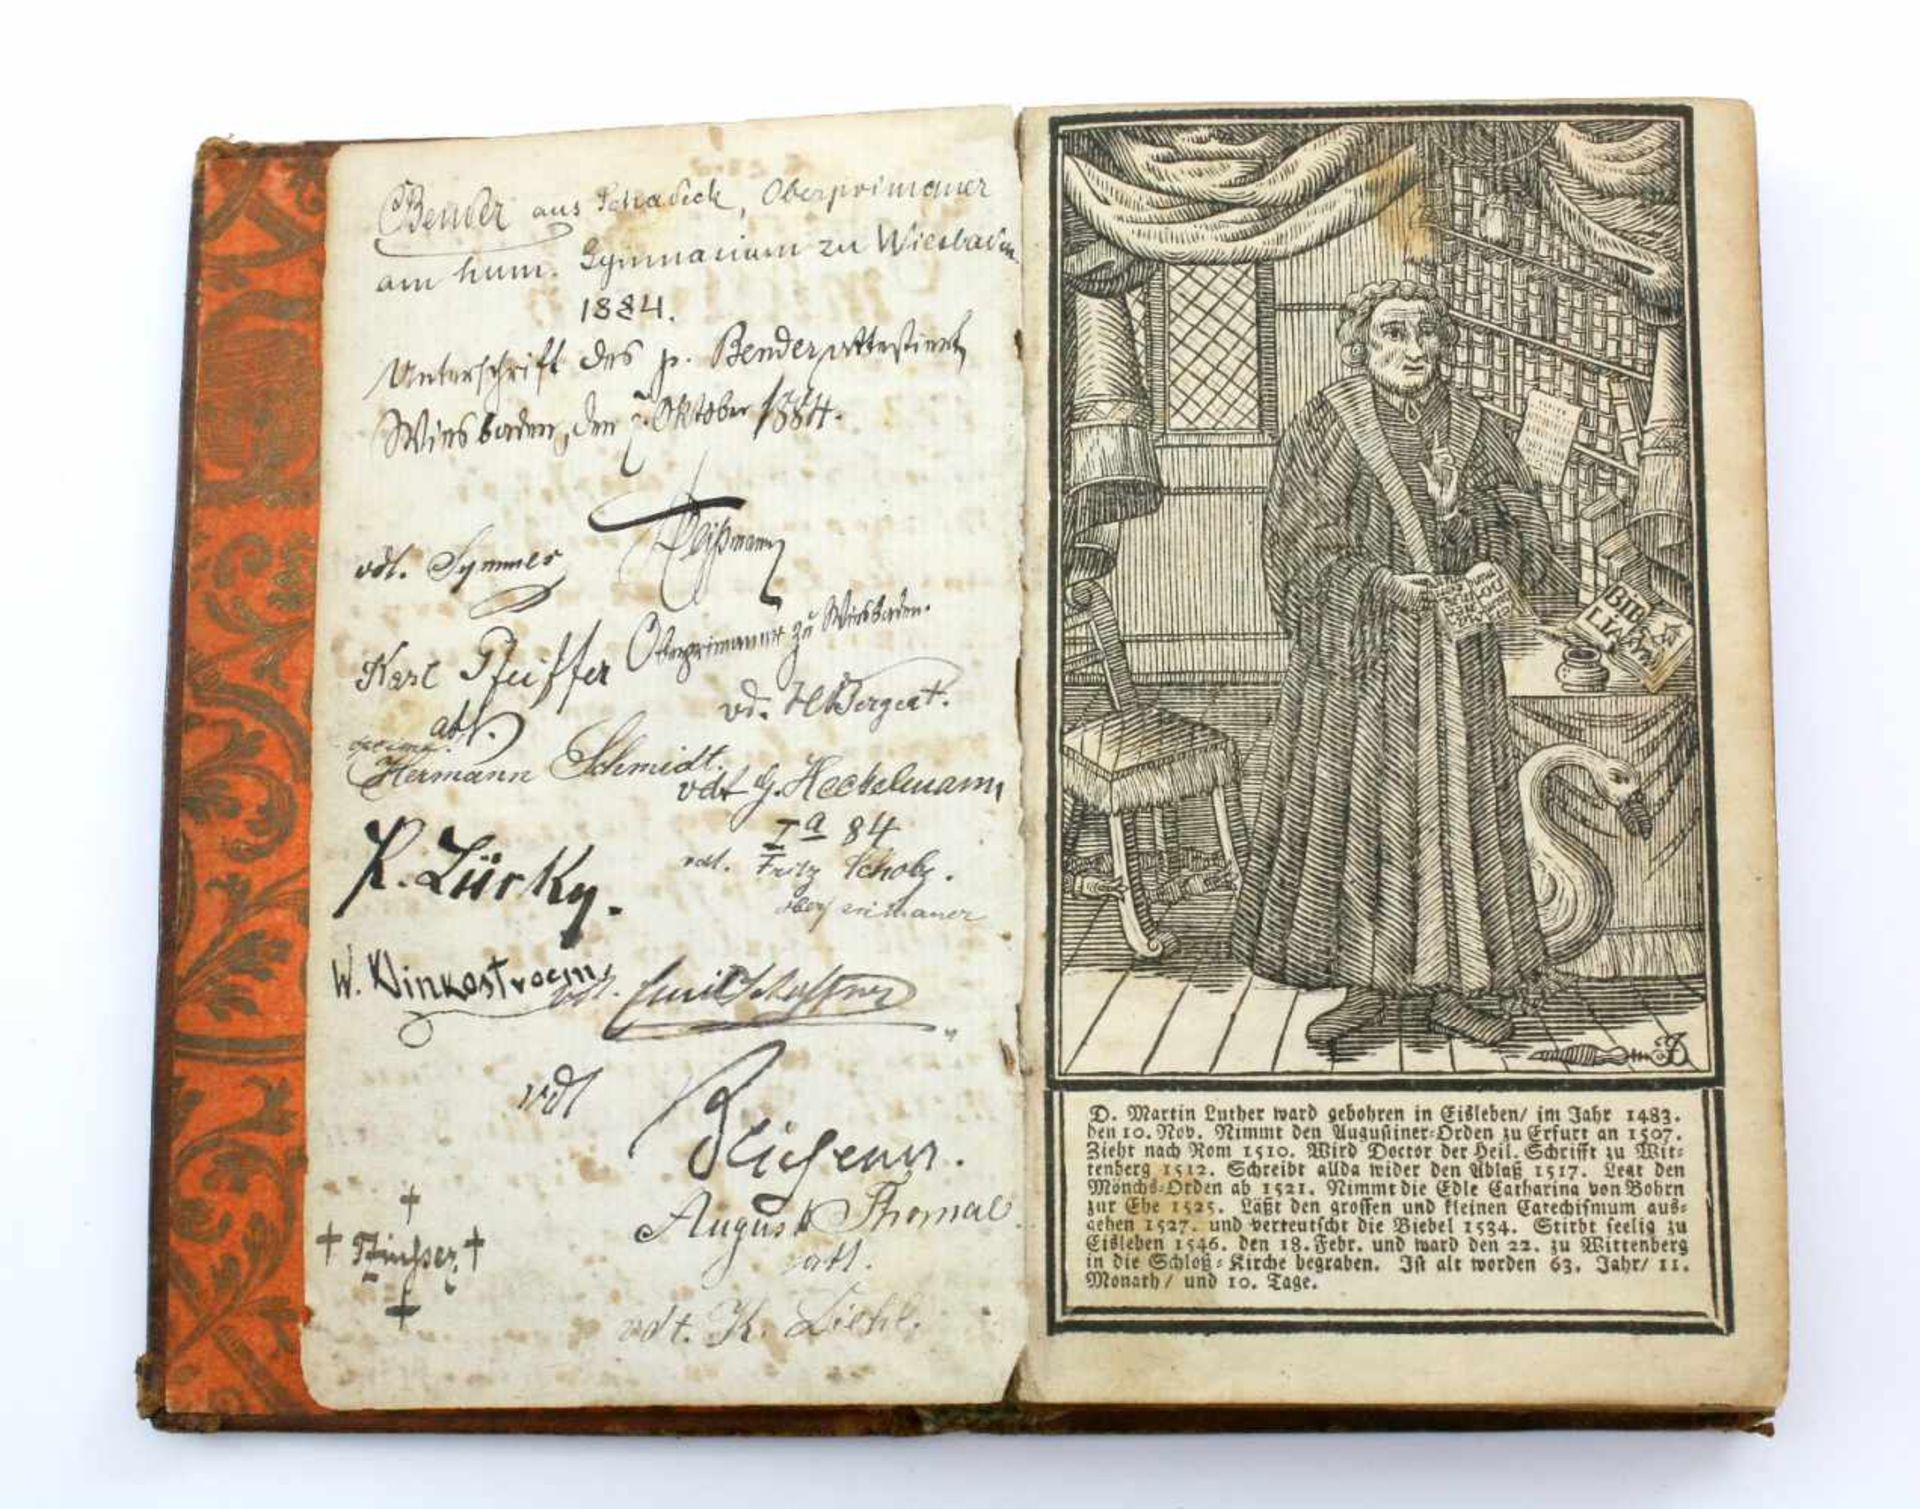 Bender aus Schadeck, Oberprimaner
am hum. Gymnasium zu Wiesbaden
1884.
Unterschrift des p. Bender attestiert
Wiesbaden, den 7. Oktober 1884.
vdt.
Karl Pfeiffer Oberprimaner zu Wiesbaden.
Hermann Schmidt.
vdt G. Heckelmann
Ia 84
vdt. Fritz Scholz.
Oberprimaner
K. Zürky.
W. Klinkostroem
vdt. Emil
vdt
August Thomae
vdt. K. Diehl.
BIB
LIA
D. Martin Luther ward gebohren in Eisleben/ im Jahr 1483.
den 10. Nov. Nimmt den Augustiner-Orden zu Erfurt an 1507.
Zieht nach Rom 1510. Wird Doctor der Heil. Schrifft zu Wit-
tenberg 1512. Schreibt allda wider den Ablaß 1517. Legt den
Mönchs-Orden ab 1521. Nimmt die Edle Catharina von Bohrn
zur Ehe 1525. Läßt den grossen und kleinen Catechismum aus-
gehen 1527. und verteutscht die Biebel 1534. Stirbt seelig zu
Eisleben 1546. den 18. Febr. und ward den 22. zu Wittenberg
in die Schloß-Kirche begraben. Ist alt worden 63. Jahr/ 11.
Monath/ und 10. Tage.